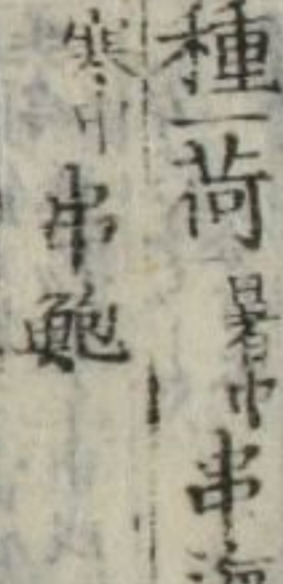 種一荷暑中串海
寒中串鮑